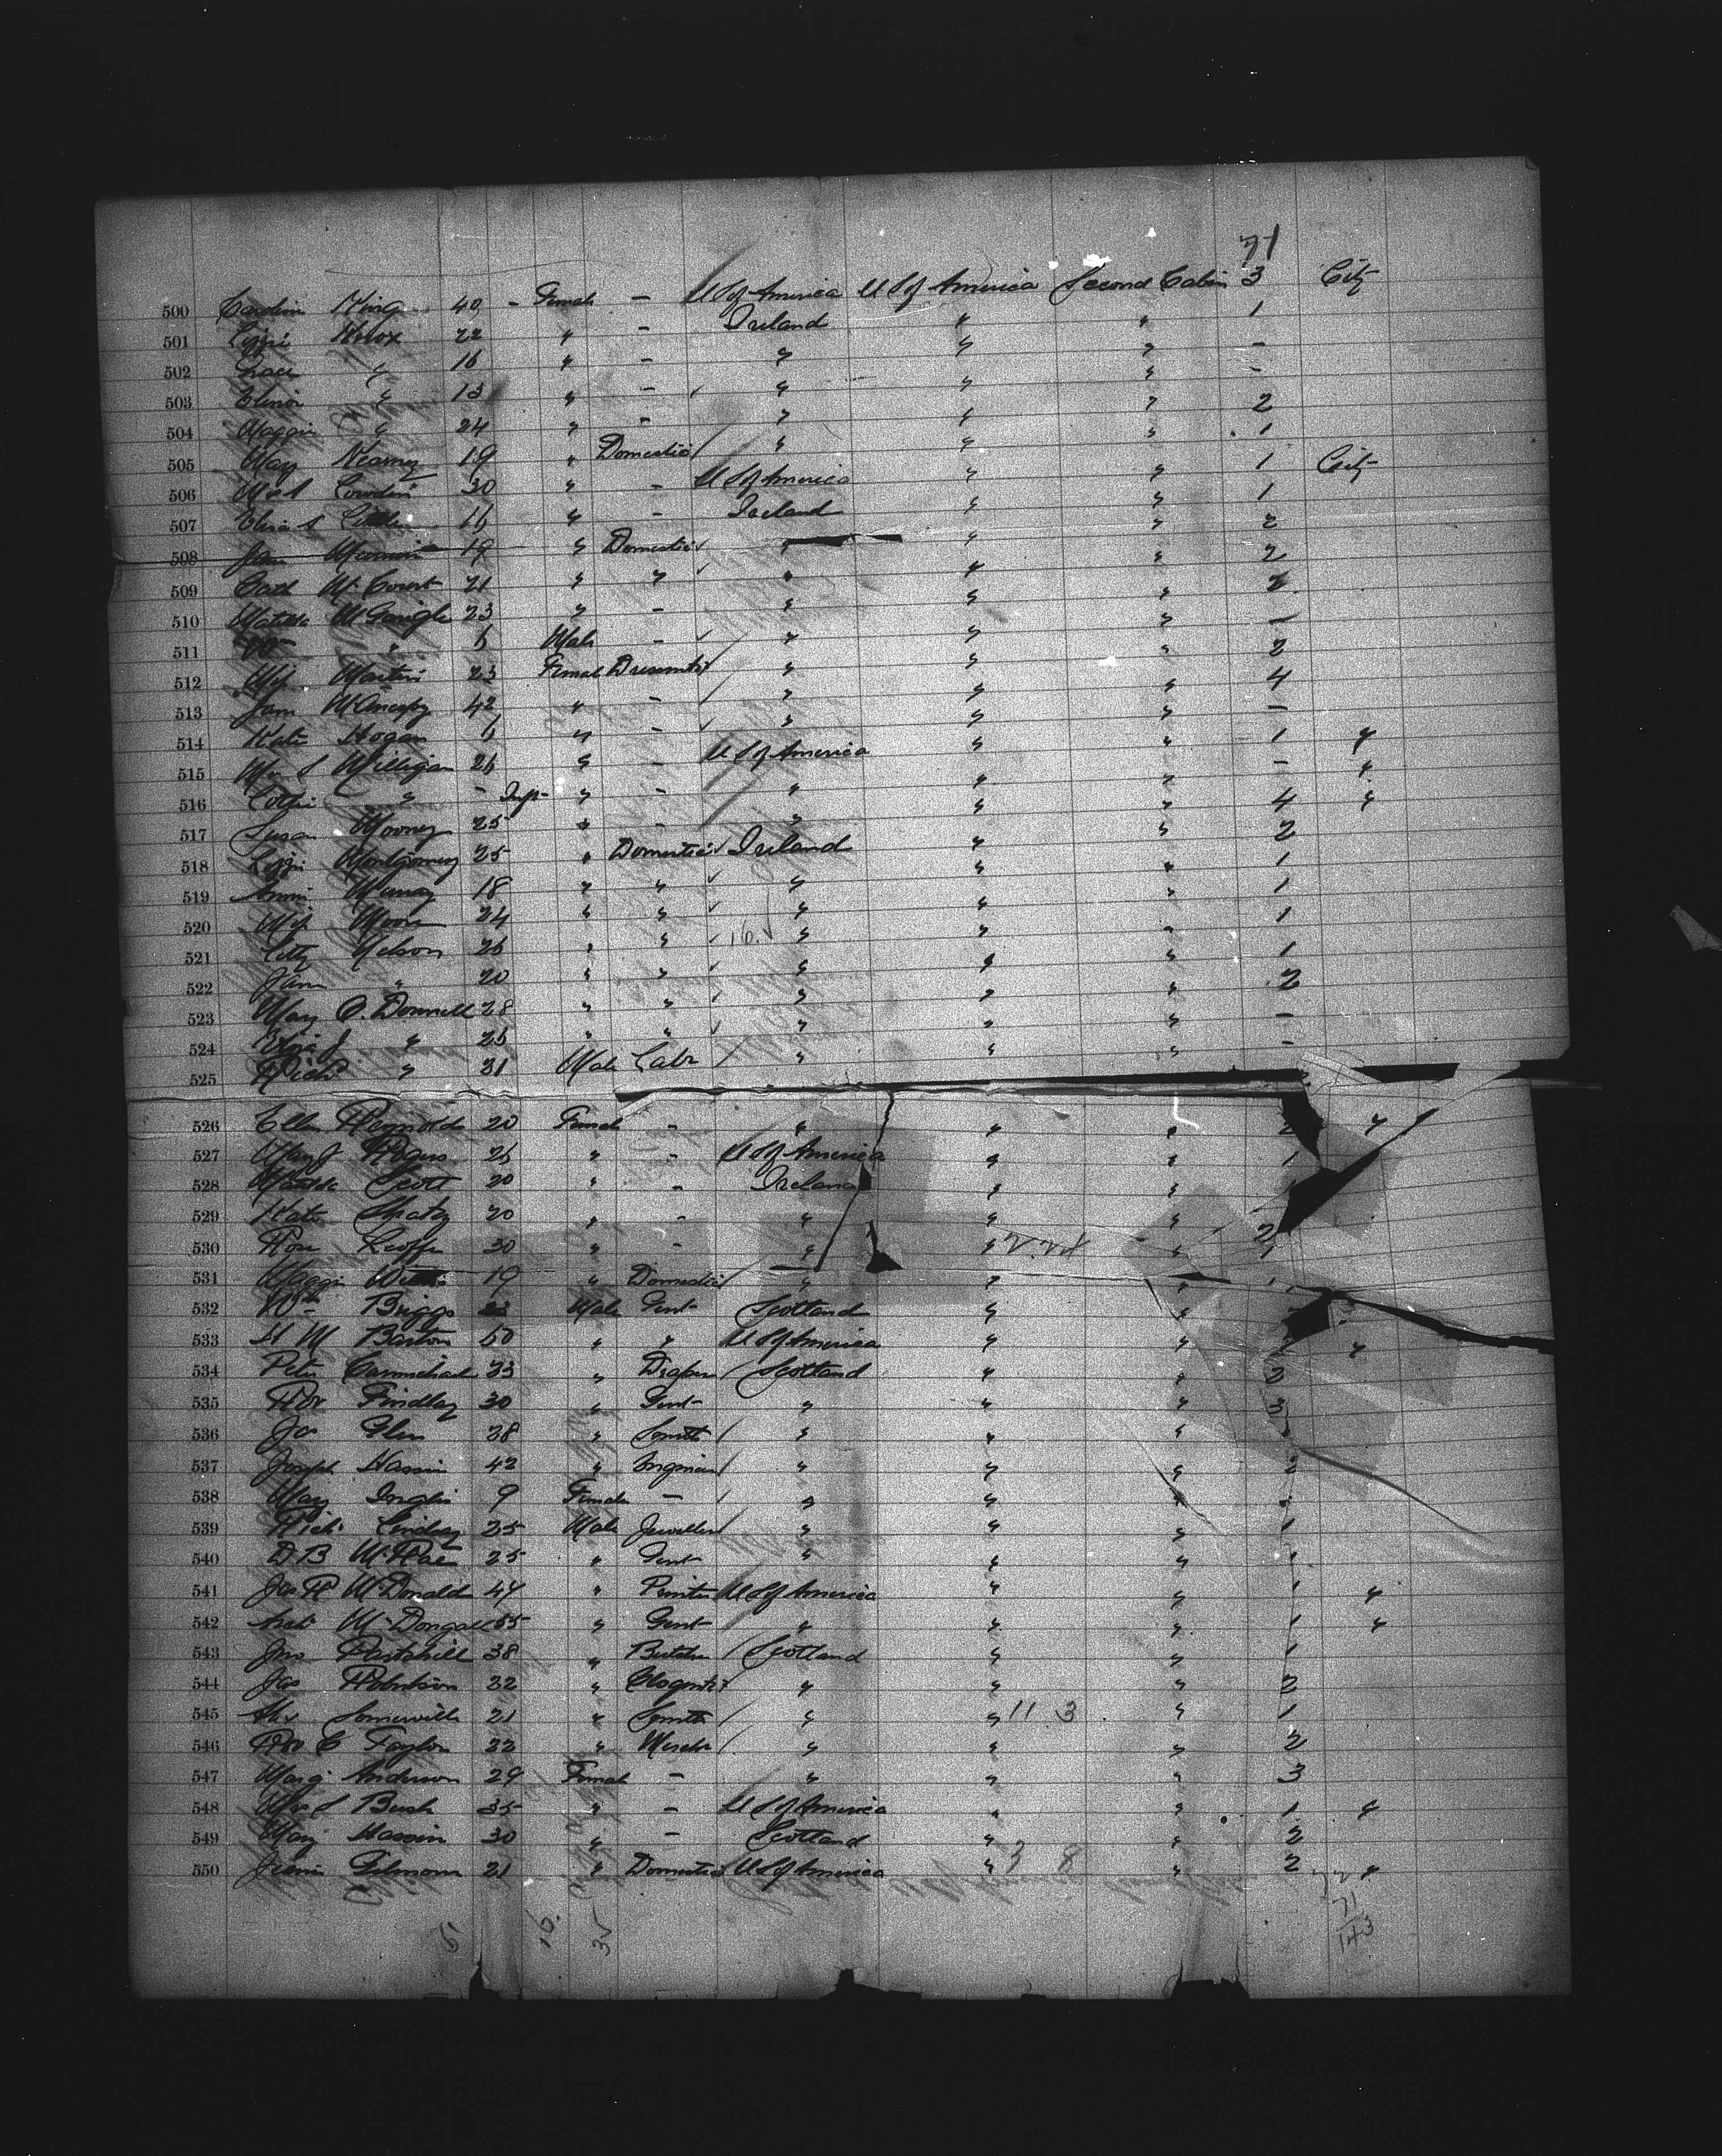 71
500 Caroline King 40 - Female - U S of America U S of America Second Cabin 3 City
501 Lizzie Knox 22 " - Ireland " " 1
502 Grace " 16 " - " " " -
503 Elinor " 13 " - " " " -
504 Maggie " 24 " - " " " 2
505 Mary Kearney 19 " Domestic " " " 1
506 30 " - U S of America " " 1 City
507 Eliza S 16 " - Ireland " " 1
508 19 " Domestic " " " 2
509 Cath McCourt 21 " " " " " 2
510 Matilda McGonigle 23 " - " " " 2
511 Wm " 6 Male - " " " -
512 Martin 23 Female " " " 2
513 Jane 42 " - " " " 4
514 Kate Hogan 6 " - " " " -
515 Mrs S Milligan 26 " - U S of America " " 1 "
516 " - Inft " - " " " - "
517 Susan Mooney 25 " - " " " 4 "
518 Lizzie Montgomery 25 " Domestic Ireland " " 2
519 Annie Murray 18 " " " " " 1
520 Moore 24 " " " " " 1
521 Letty Nelson 26 " " 16 " " " 1
522 Jane " 20 " " " " " 1
523 Mary O'Donnell 28 " " " " " 2
524 Eliza J " 26 " " " " " -
525 Richd " 31 Male Labr " " " -
526 Ellen Reynolds 20 Female - " " " 2 "
527 Mary J Rogers 26 " - U S of America " " 1
528 Matilda Scott 20 " - Ireland " " 1
529 Kate 20 " - " " " 2
530 Rose 30 " - " " " 1
531 Maggie 19 " Domestic " " " 1
532 Wm Briggs 23 Male Gent Scotland " "
533 H M Barton 50 " " U S of America " " "
534 Peter Carmichael 33 " Draper Scotland " " 2
535 Robt Findlay 30 " Gent " " " 3
536 Jas Glen 38 " Smith " " "
537 Joseph 42 " Engineer " " " 2
538 Mary Inglis 9 Female - " " " -
539 Richd Lindsay 25 Male Jeweller " " " 1
540 D B McRae 25 " Gent " " " 1
541 Jas R McDonald 44 " Printer U S of America " " 1 "
542 Archd McDougall 55 " Gent " " " 1 "
543 Jno Partchill 38 " Butcher Scotland " " 1
544 Jas Robinson 32 " " " " 2
545 Alex Somerville 21 " Smith " " 11 3 " 1
546 Robt C Taylor 22 " Mercht " " " 2
547 Marg Anderson 29 Female - " " " 3
548 Mrs S Bush 35 " - U S of America " " 1 "
549 Mary 30 " - Scotland " " 2
550 Jeanie Gilmour 21 " Domestic U S of America " 3 8 " 2 "
16. 35 71
143